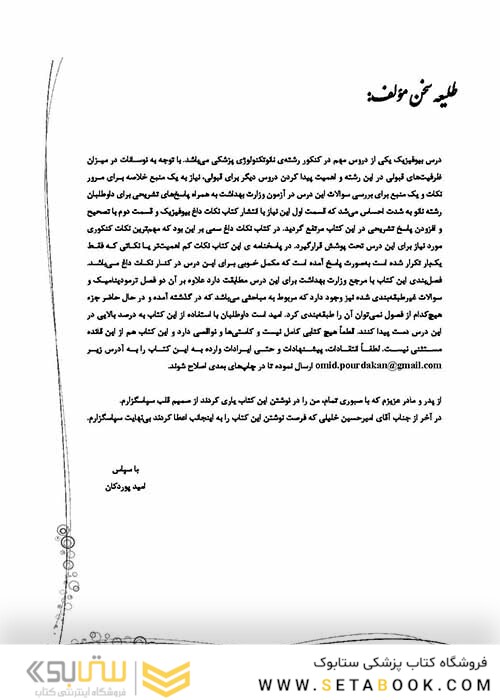 طلیعه سخن مؤلف:
درس بیوفیزیک یکی از دروس مهم در کنکور رشته‌ی نانوتکنولوژی پزشکی می‌باشد. با توجه به نوسانات در میزان
ظرفیت‌های قبولی در این رشته و اهمیت پیدا کردن دروس دیگر برای قبولی، نیاز به یک منبع خلاصه برای مرور
نکات و یک منبع برای بررسی سوالات این درس در آزمون وزارت بهداشت به همراه پاسخ‌های تشریحی برای داوطلبان
رشته نانو به شدت احساس می‌شد که قسمت اول این نیاز با انتشار کتاب نکات داغ بیوفیزیک و قسمت دوم با تصحیح
و افزودن پاسخ تشریحی در این کتاب مرتفع گردید. در کتاب نکات داغ سعی بر این بود که مهم‌ترین نکات کنکوری
مورد نیاز برای این درس تحت پوشش قرارگیرد. در پاسخنامه ی این کتاب نکات کم اهمیت‌تر یا نکاتی که فقط
یک‌بار تکرار شده است به‌صورت پاسخ آمده است که مکمل خوبی برای این درس در کنار نکات داغ می‌باشد.
فصل‌بندی این کتاب با مرجع وزارت بهداشت برای این درس مطابقت دارد علاوه بر آن دو فصل ترمودینامیک و
سوالات غیرطبقه‌بندی شده نیز وجود دارد که مربوط به مباحثی می‌باشد که در گذشته آمده و در حال حاضر جزء
هیچ‌کدام از فصول نمی‌توان آن را طبقه‌بندی کرد. امید است داوطلبان با استفاده از این کتاب به درصد بالایی در
این درس دست پیدا کنند. قطعاً هیچ کتابی کامل نیست و کاستی‌ها و نواقصی دارد و این کتاب هم از این قائده
مستثنی نیست. لطفاً انتقادات، پیشنهادات و حتی ایرادات وارده به این کتاب را به آدرس زیر
omid.pourdakan@gmail.com ارسال نموده تا در چاپ‌های بعدی اصلاح شوند.
از پدر و مادر عزیزم که با صبوری تمام، من را در نوشتن این کتاب یاری کردند از صمیم قلب سپاسگزارم.
در آخر از جناب آقای امیرحسین خلیلی که فرصت نوشتن این کتاب را به اینجانب اعطا کردند بی‌نهایت سپاسگزارم.
با سپاس
امید پوردکان
فروشگاه کتاب پزشکی ستابوک
WWW.SETABOOK.COM
ستابوک
فروشگاه اینترنتی کتاب